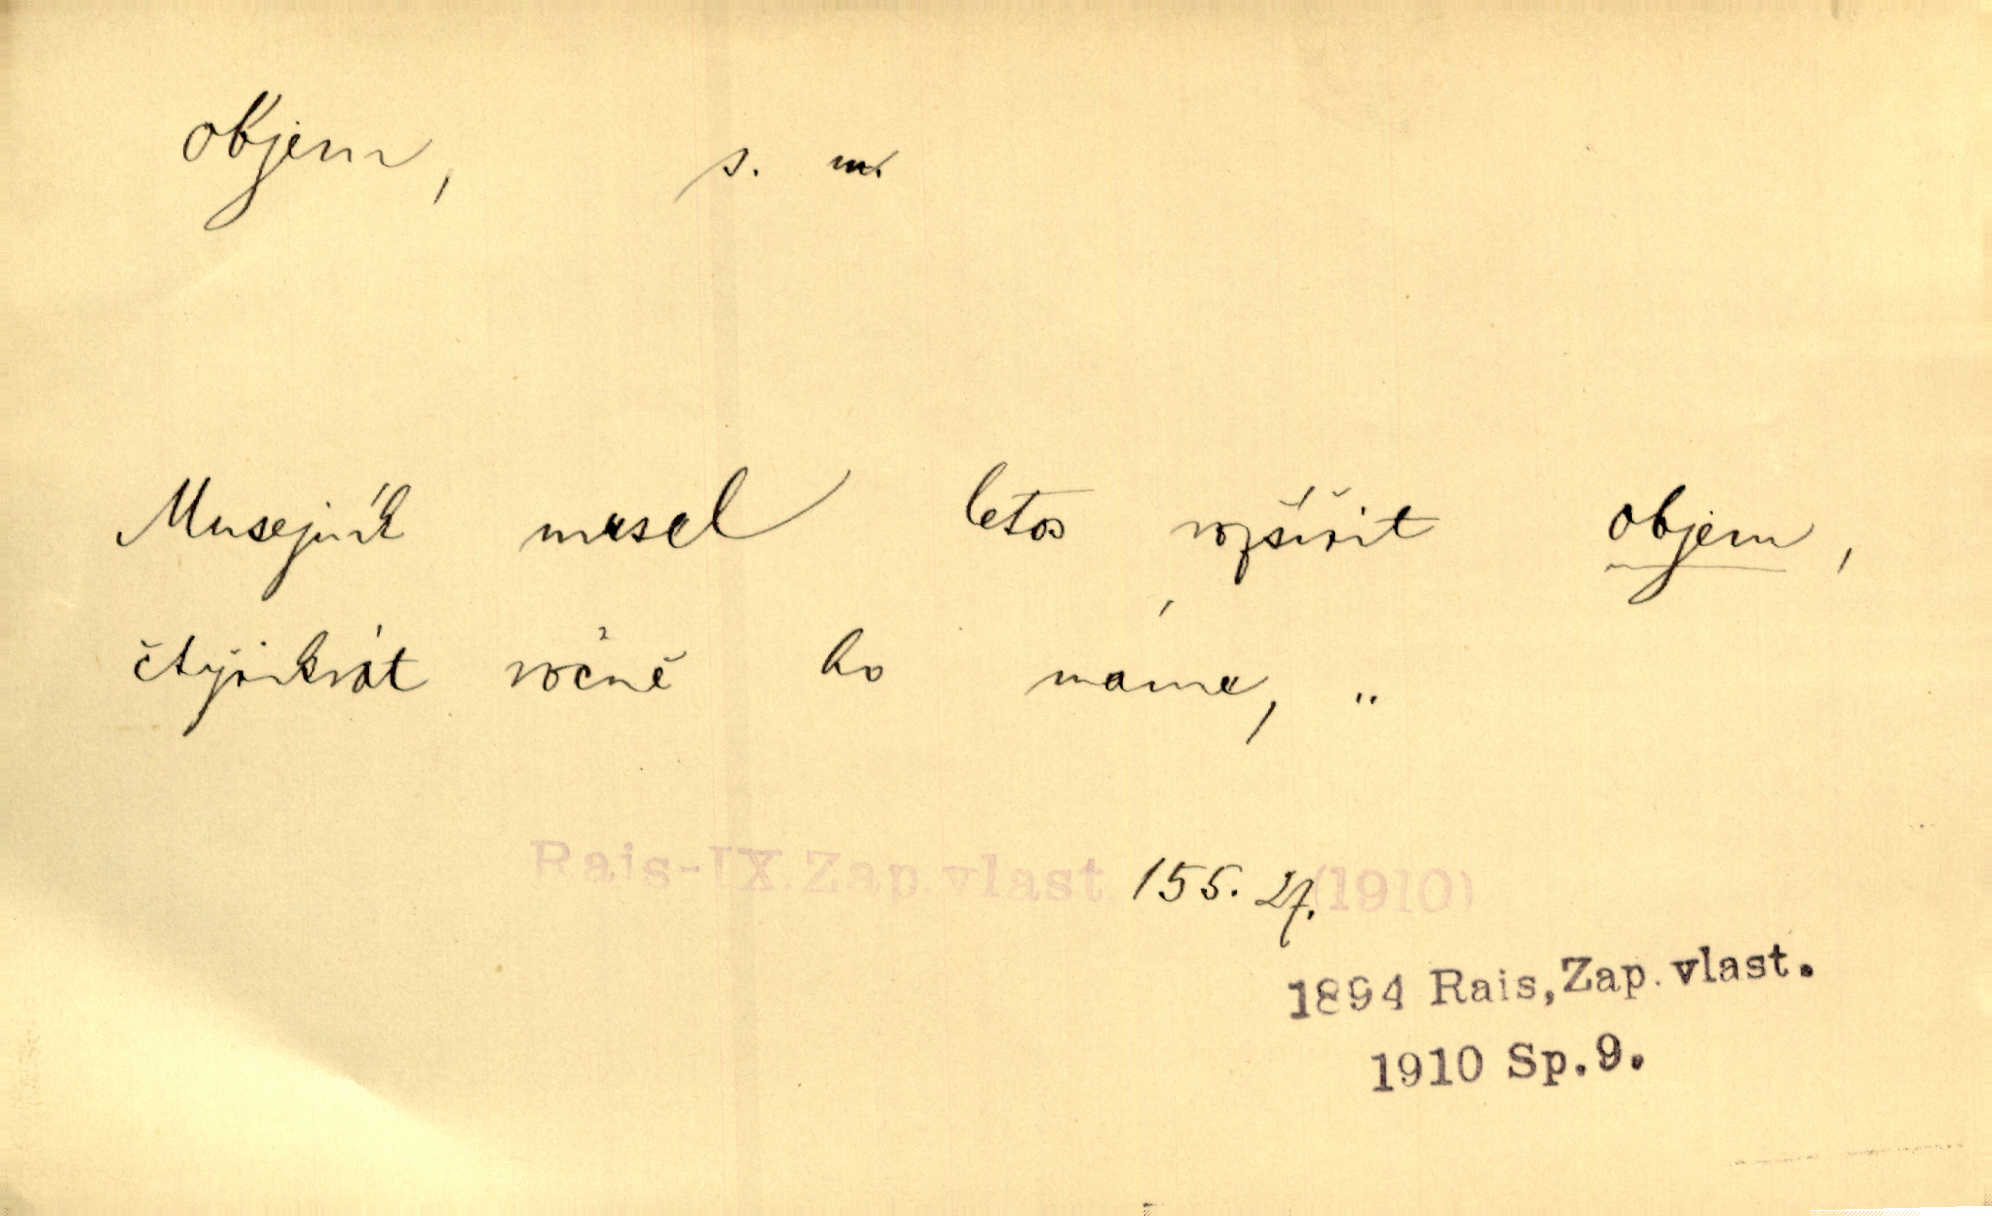 objem, s. m.
Musejník musel letos rozšířit objem,
čtyřikrát ročně ho máme, ..
Rais-IX.Zap.vlast 155. 27. (1910)
1894 Rais, Zap. vlast.
1910 Sp. 9.